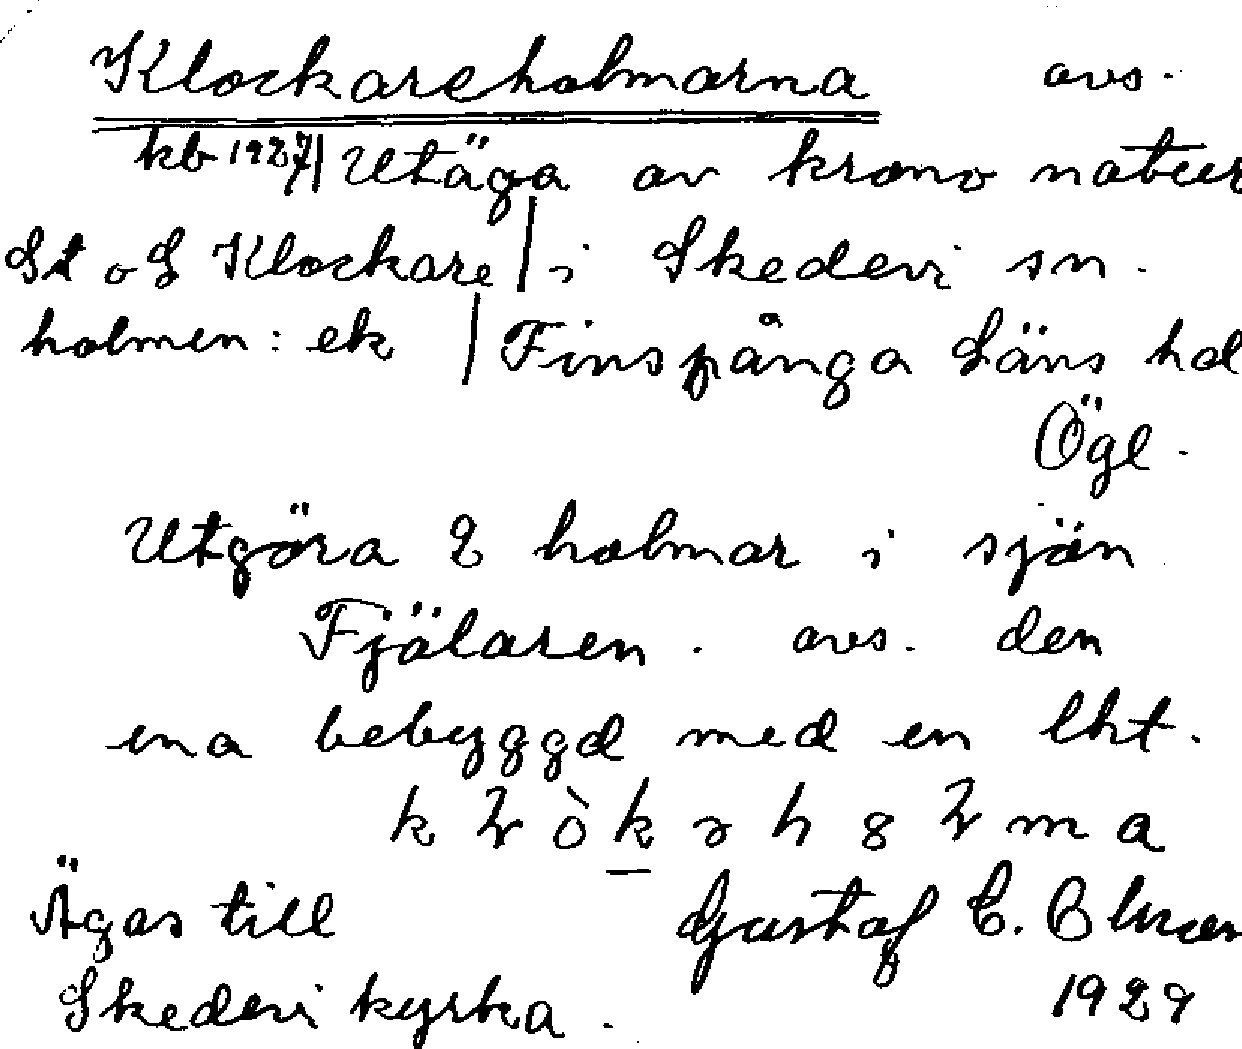 Klockareholmarna avs.
kb 1927/ Utäga av krono natur
St o L Klockare / i Skedevi sn.
holmen: ek / Finspånga Läns hd
Ögl.
Utgöra 2 holmar i sjön
Fjälaren. avs. den
ena bebyggd med en lht.
Ägas till Gustaf C.
Skedevi kyrka. 1929